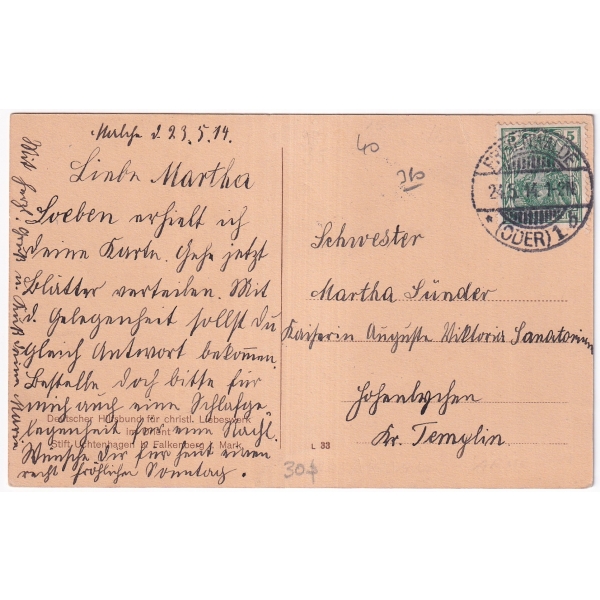 Malche d. 23.5.14.
Liebe Martha
Soeben erhielt ich
deine Karte. Gehe jetzt
Blätter verteilen. Mit
d. Gelegenheit sollst du
gleich Antwort bekommen.
Bestelle doch bitte für
mich auch eine Schlafge
legenheit für eine Nacht.
Wünsche Dir für heut einen
recht fröhlichen Sonntag.
Gruß u. Kuß
Deutscher Hilfsbund für christl. Liebeswerk
im Orient
Stift Uchtenhagen b. Falkenberg i. Mark
L 33
40
310
30
5
FREIENWALDE
24.5.14.1-2N
* (ODER) 1.
5
Schwester
Martha Sünder
Kaiserin Auguste Viktoria Sanatorium
Hohenlychen
Kr. Templin.